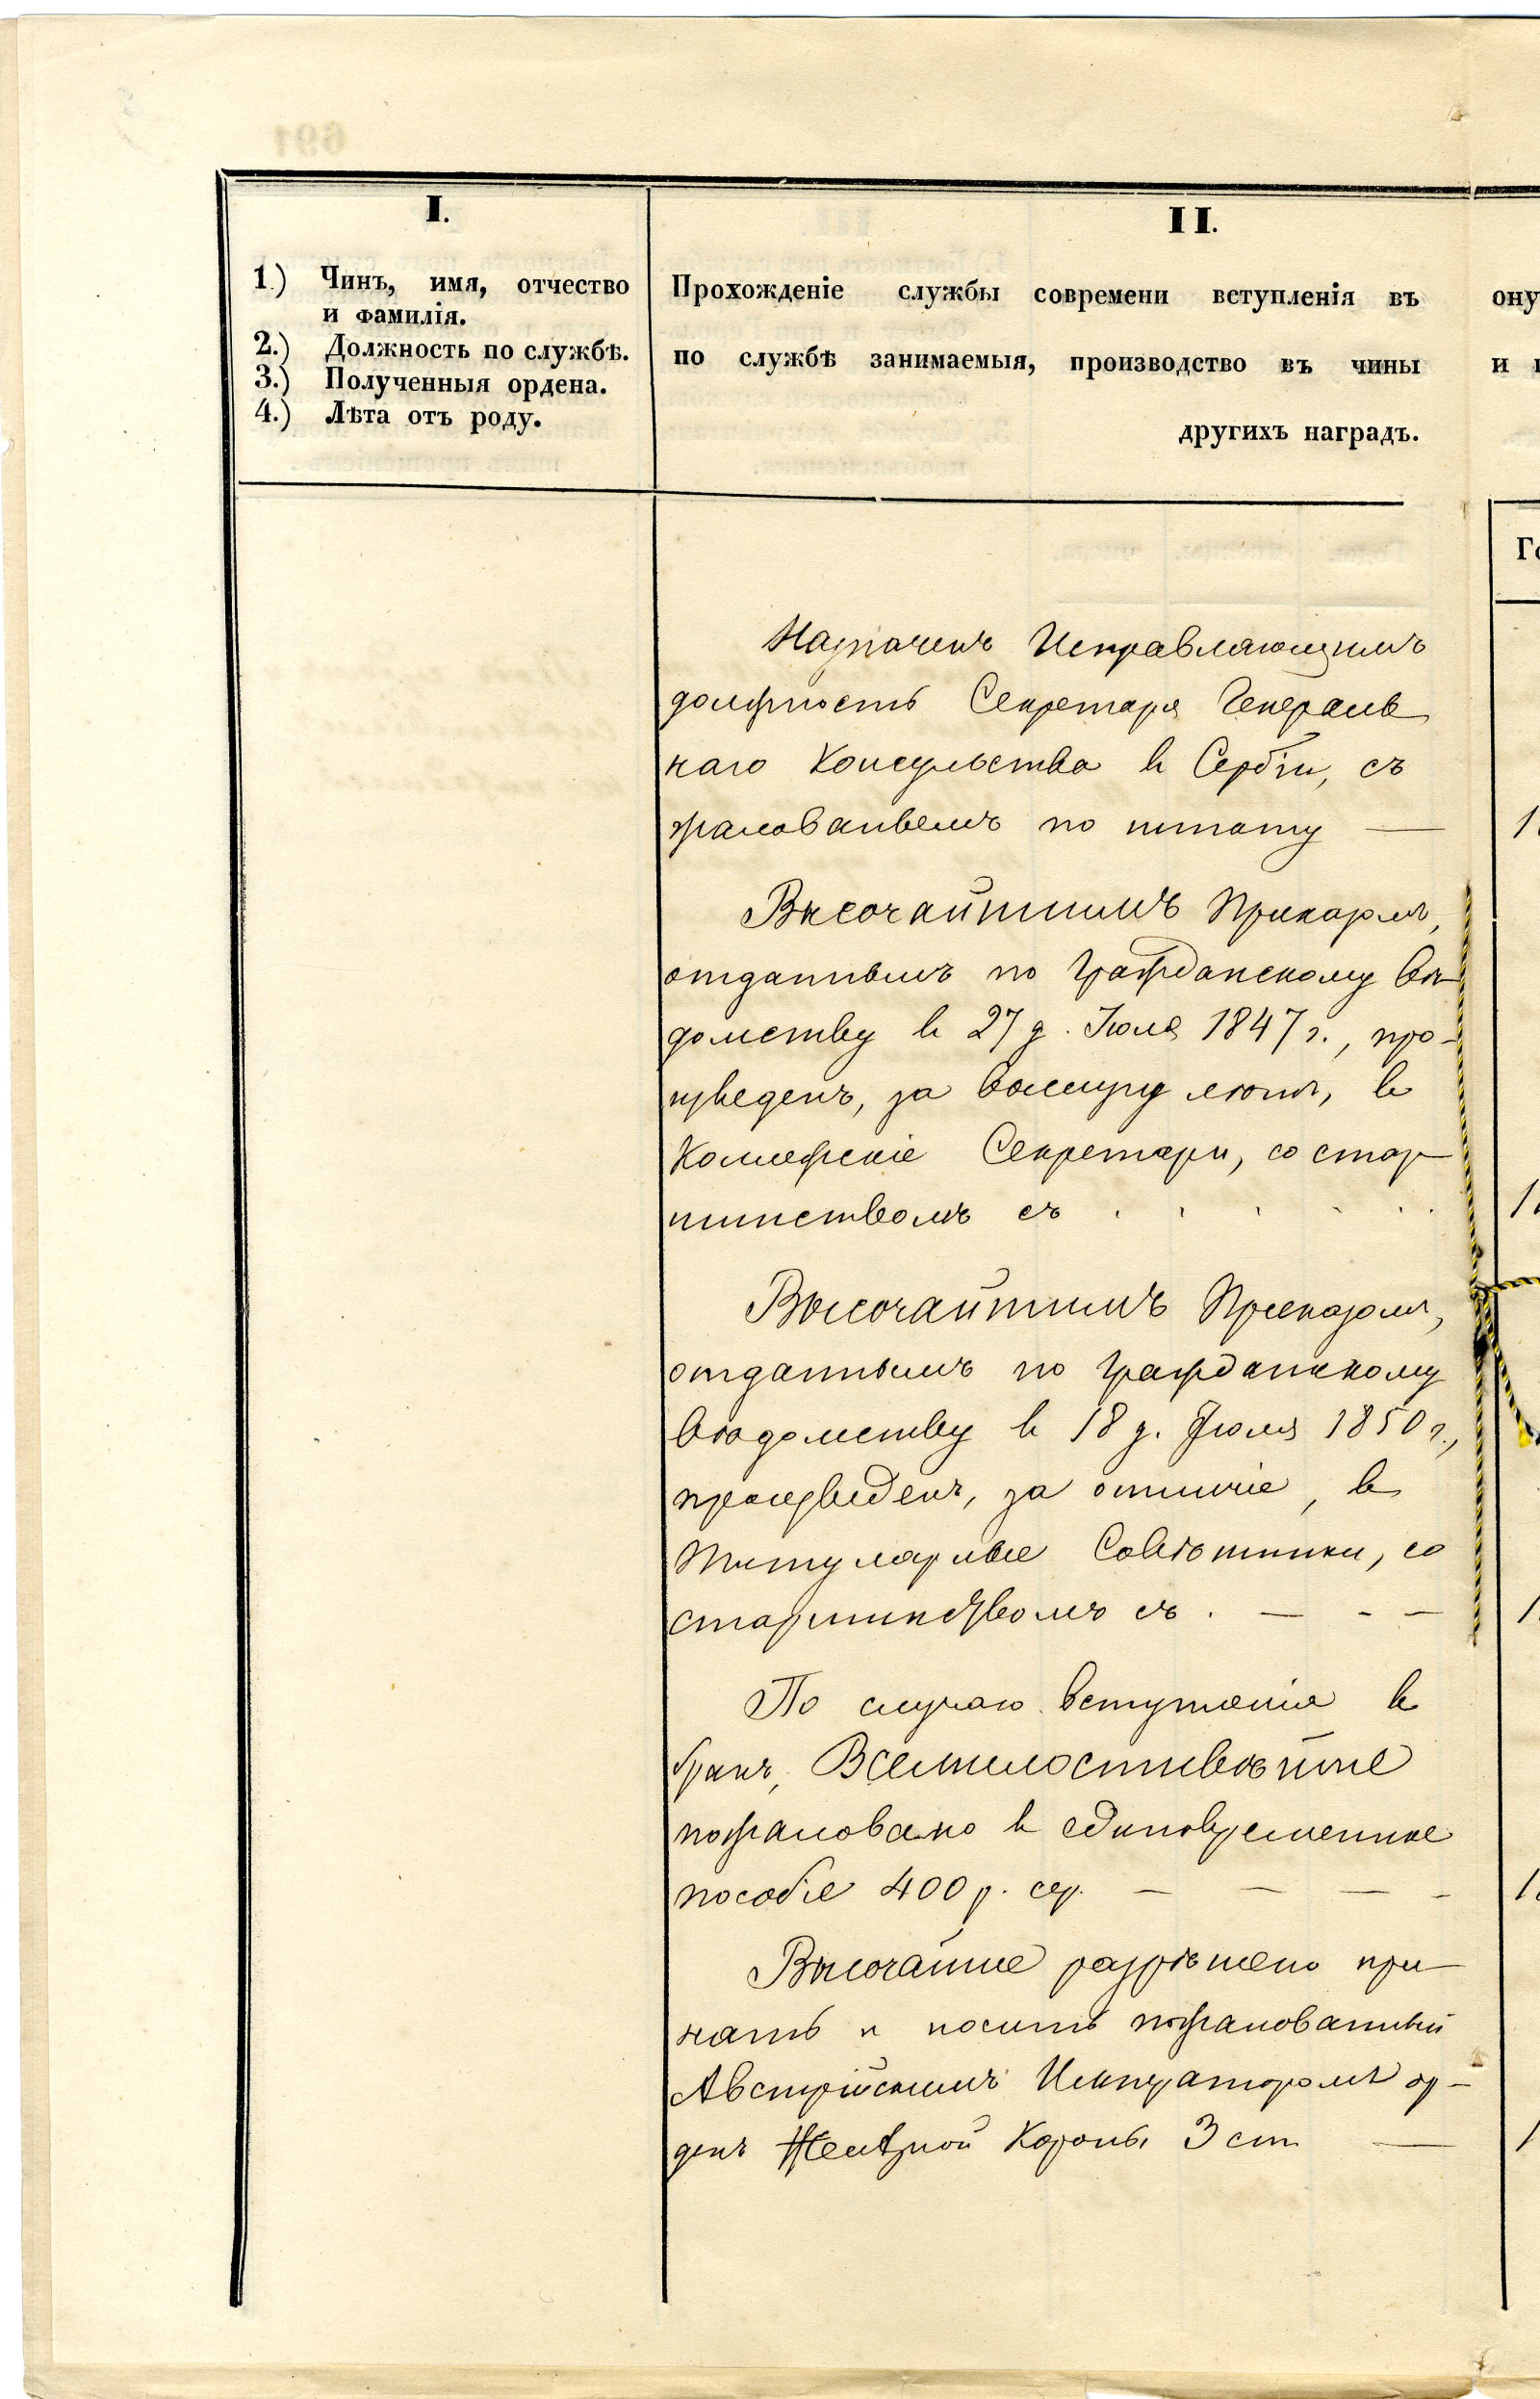 I.
1.) Чинъ, имя, отчество
и фамилія.
2.) Должность по службѣ.
3.) Полученныя ордена.
4.) Лѣта отъ роду.
II.
Прохожденіе службы современи вступленія въ ону
по службѣ занимаемыя, производство въ чины и
другихъ наградъ.
Назначенъ Исправляющимъ
должность Секретаря Генераль
наго Консульства въ Сербіи, съ
жалованьемъ по штату —
Высочайшимъ Приказомъ,
отданнымъ по Гражданскому Вѣ
домству въ 27 д. Іюля 1847 г., про-
изведенъ, за выслугу лѣтъ, въ
Коллежскіе Секретари, со стар
шинствомъ съ . . . . . .
Высочайшимъ Приказомъ,
отданнымъ по Гражданскому
Вѣдомству въ 18 д. Іюля 1850 г.,
произведенъ, за отличіе, въ
Титулярные Совѣтники, со
старшинствомъ съ . — - —
По случаю вступленія въ
бракъ, Всемилостивѣйше
пожаловано въ единовременное
пособіе 400 р. сер. — — — -
Высочайше разрѣшено при
нять и носить пожалованный
Австрійскимъ Императоромъ ор-
денъ Желѣзной Короны 3 ст. —